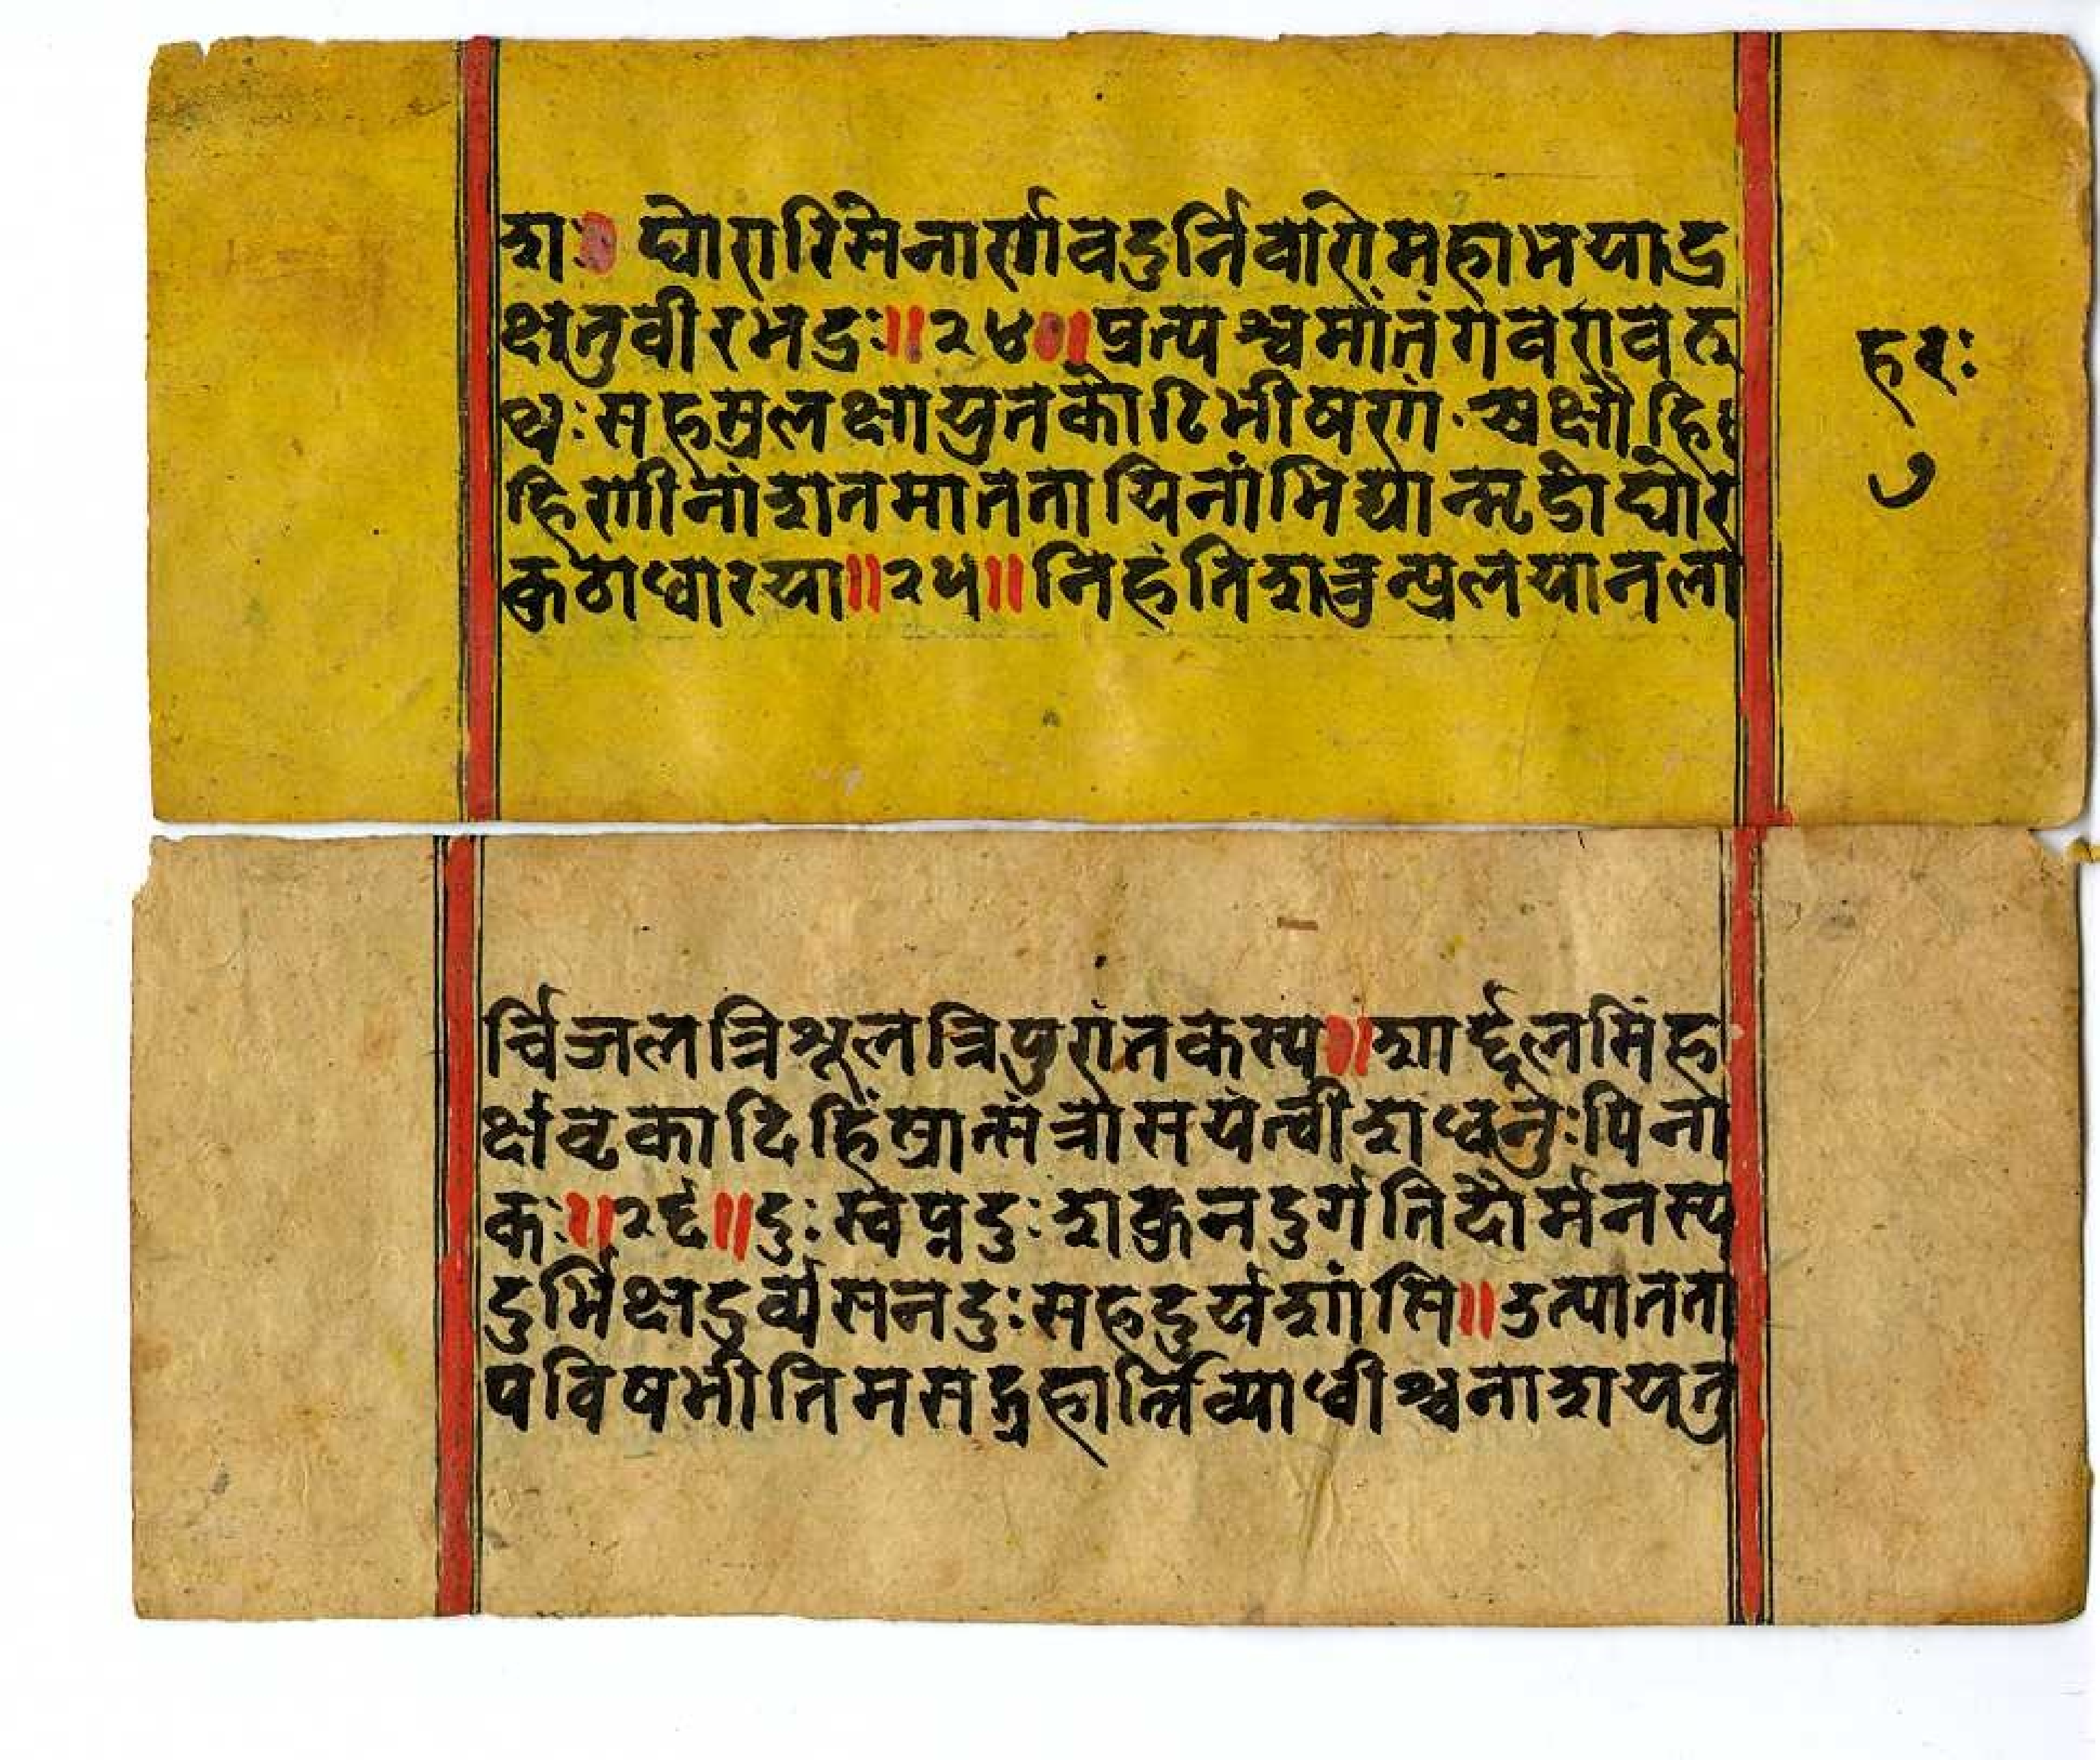 शः। घोरारिसेनार्णवदुर्निवारोमहाभयाद्र
क्षतुवीरभद्रः॥२४॥प्रत्पश्वमांतंगवरावरू
हरः
थः सहस्रलक्षायुतकोटिभीषणं अक्षौहि
७
हिणीनांशतमाततायिनांभिद्यान्मृडोघोर
कुठाधारया॥२५॥निहंतिशत्रुन्प्रलयानला
र्चिजलत्रिशूलत्रिपुरांतकस्प॥शार्द्दूलसिंह
र्क्षवृकादिहिंस्रात्संत्रासयेत्वीशधनुःपिना
कः॥२६॥दुःस्वप्नदुःशकुनदुर्गतिदौर्मनस्य
दुर्भिक्षदुर्व्यसनदुःसहदुर्यशांसि॥उत्पातता
पविषभीतिमसद्ग्रहार्त्तिव्याधीश्चनाशयतु